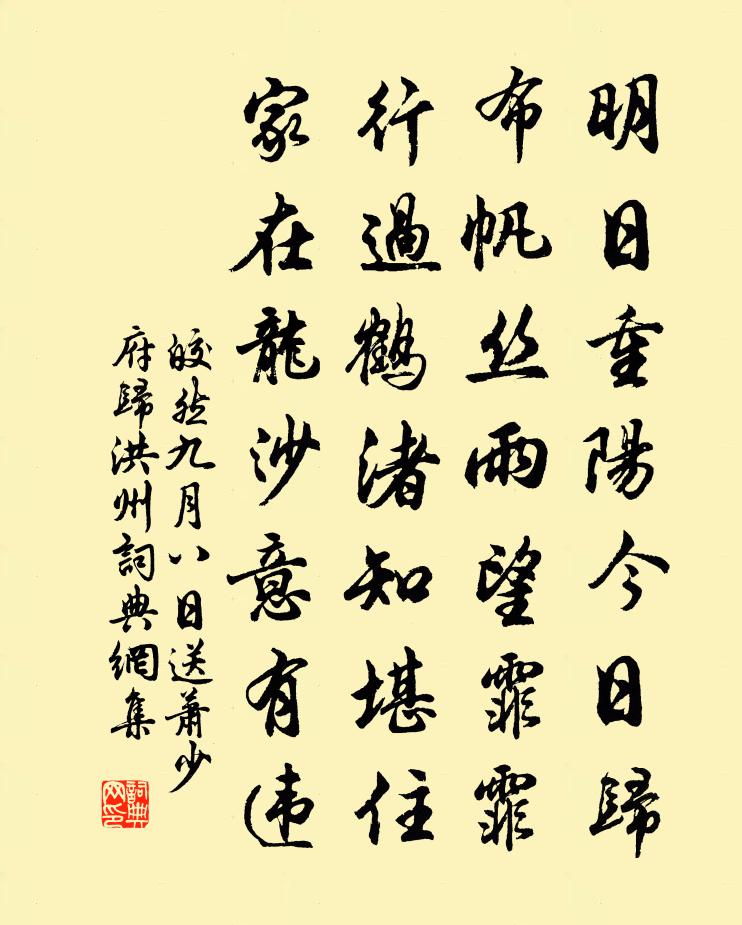 明日重陽今日歸
布帆丝雨望霏霏
行過鶴渚知堪住
家在龍沙意有违
皎然九月八日送蕭少
府歸洪州詞典網集
詞典
网印